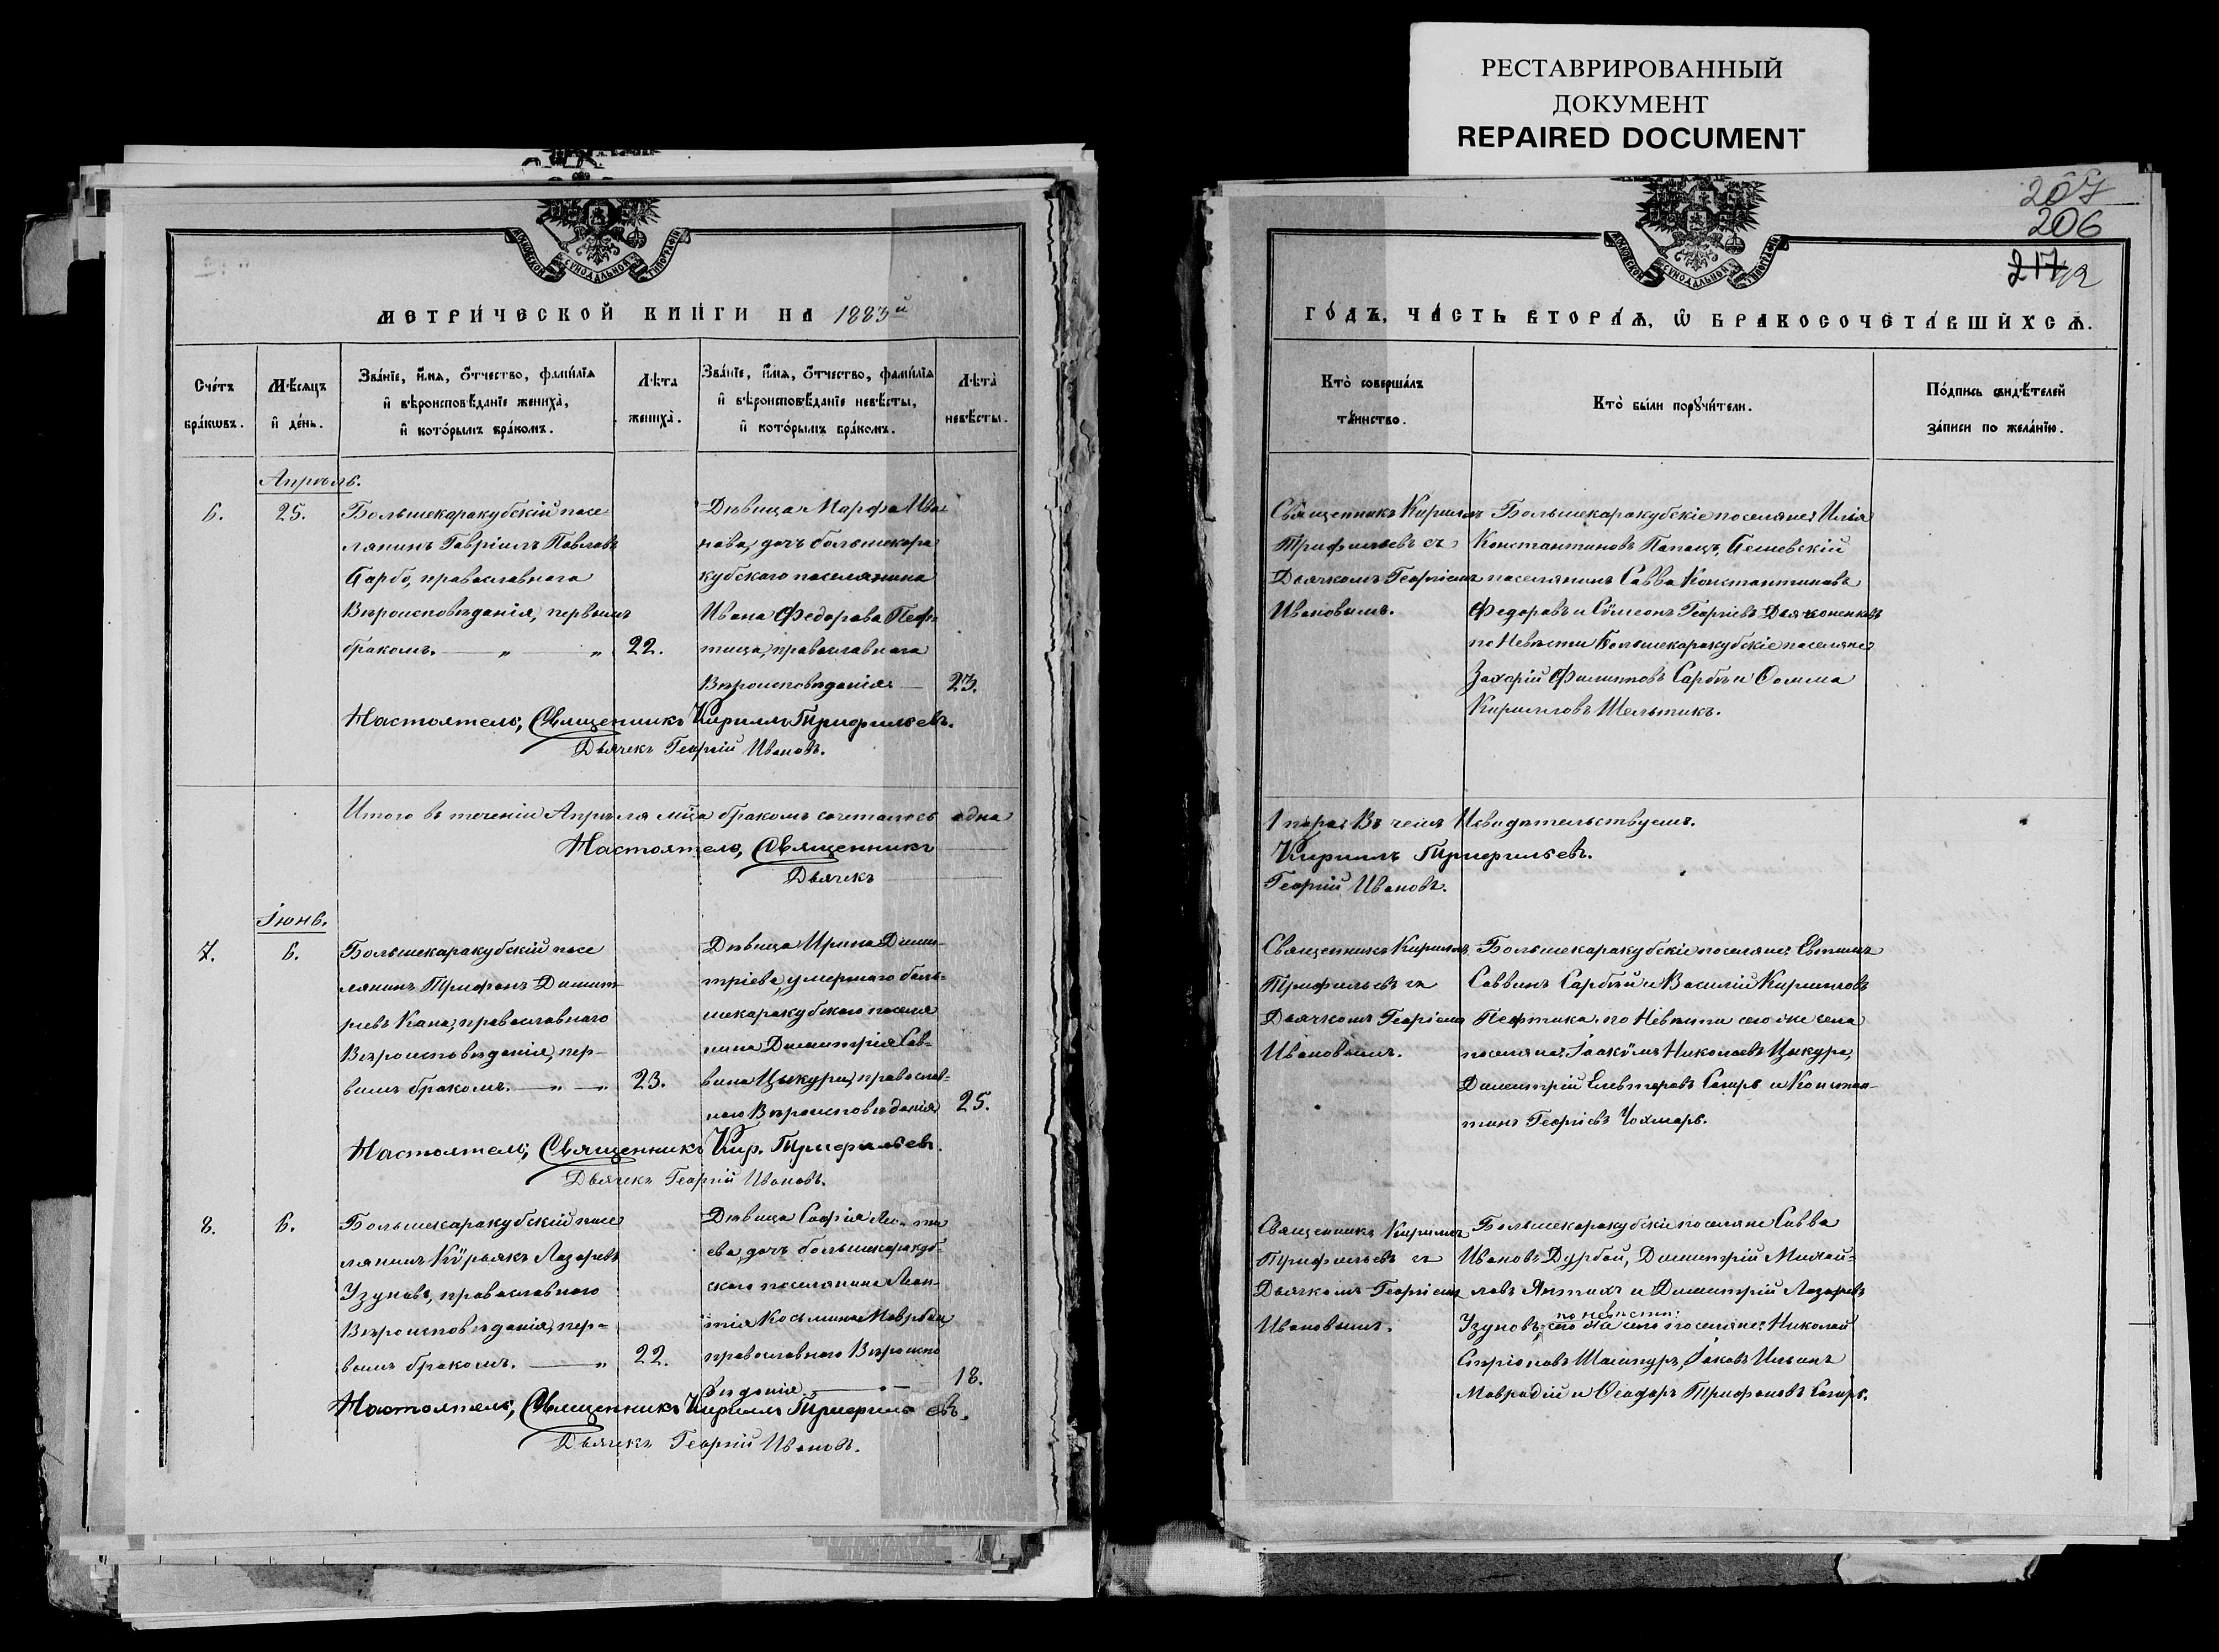 РЕСТАВРИРОВАННЫЙ
ДОКУМЕНТ
REPAIRED DOCUMENT
МОСКОВСКОЙ СѴНОДАЛЬНОЙ ТИПОГРАФІИ
МЕТРИЧЕСКОЙ КНИГИ НА 1883й
Счетъ браковъ.
Мѣсяцъ и день.
Званіе, имя, отчество, фамилія и вѣроисповѣданіе жениха, и которымъ бракомъ.
Лѣта жениха.
Званіе, имя, отчество, фамилія и вѣроисповѣданіе невѣсты, и которымъ бракомъ.
Лѣта невѣсты.
Апрѣль.
6. 25.
Большекаракубскій посе
лянинъ Гавріилъ Павловъ
Сарбо, православнаго
Вѣроисповѣданія, первымъ
бракомъ. — „ — „ 22.
Дѣвица Марфа Ива
нова, дочь большекара
кубскаго поселянина
Ивана Федорова Пеф
тица, православнаго
Вѣроисповѣданія — 23.
Настоятель, Священникъ Кириллъ Трифильевъ.
Дьячекъ Георгій Ивановъ.
Итого въ теченіи Апрѣля мца бракомъ сочеталось одна
Настоятель, Священникъ
Дьячекъ
Іюнь.
7. 6.
Большекаракубскій посе
лянинъ Трифонъ Димит
ріевъ Капа, православнаго
Вѣроисповѣданія, пер-
вымъ бракомъ. — „ — 23.
Дѣвица Ирина Дими-
тріева, умершаго боль-
шекаракубскаго поселя
нина Димитрія Сав-
вина Цыкури, православ-
наго Вѣроисповѣданія 25.
Настоятель, Священникъ Кир. Трифильевъ.
Дьячекъ Георгій Ивановъ.
8. 6.
Большекаракубскій посе
лянинъ Кѵрьякъ Лазаревъ
Узуновъ, православнаго
Вѣроисповѣданія, пер-
вымъ бракомъ. — „ 22.
Дѣвица Софія
ева, дочь большекаракуб-
скаго поселянина Леон-
тія Косьмина Мавроди
православнаго Вѣроиспо
вѣданія — 18.
Настоятель, Священникъ Кириллъ Трифильевъ.
Дьячекъ Георгій Ивановъ.
207
206
217
МОСКОВСКОЙ СѴНОДАЛЬНОЙ ТИПОГРАФІИ
ГОДЪ, ЧАСТЬ ВТОРАЯ, Ѡ БРАКОСОЧЕТАВШИХСЯ.
Кто совершалъ таинство.
Кто были поручители.
Подпись свидѣтелей записи по желанію.
Священникъ Кириллъ
Трифильевъ съ
Дьячкомъ Георгіемъ
Ивановымъ.
Большекаракубскіе поселяне: Илья
Константиновъ Папацъ,
поселянинъ Савва Константиновъ
Федоровъ и Сѵмеонъ Георгіевъ Дьячоненковъ
по Невѣсти Большекаракубскіе поселяне
Захарій Филипповъ Сарбъи Ѳома
Кирилловъ Шельтикъ.
1 пара. Въ чемъ Исвидѣтельствуемъ.
Кириллъ Трифильевъ.
Георгій Ивановъ.
Священникъ Кириллъ
Трифильевъ съ
Дьячкомъ Георгіемъ
Ивановымъ.
Большекаракубскіе поселяне: Евтимъ
Саввинъ Сарбъи и Василій Кирилловъ
Пефтика, по Невѣсти сего же села
поселяне: Іоакѵмъ Николаевъ Цыкура,
Димитрій Елевтеровъ Сахръ и Констан-
тинъ Георгіевъ Чохмаръ.
Священникъ Кириллъ
Трифильевъ съ
Дьячкомъ Георгіемъ
Ивановымъ.
Большекаракубскіе поселяне Савва
Ивановъ Дурбай, Димитрій Михай-
ловъ Янтахъ и Димитрій Лазаревъ
по невѣсти:
Узуновъ, сего же села поселяне: Николай
Спиріоновъ Шапнуръ, Іаковъ Ильинъ
Мавродій и Ѳеодоръ Трифоновъ Сахръ.